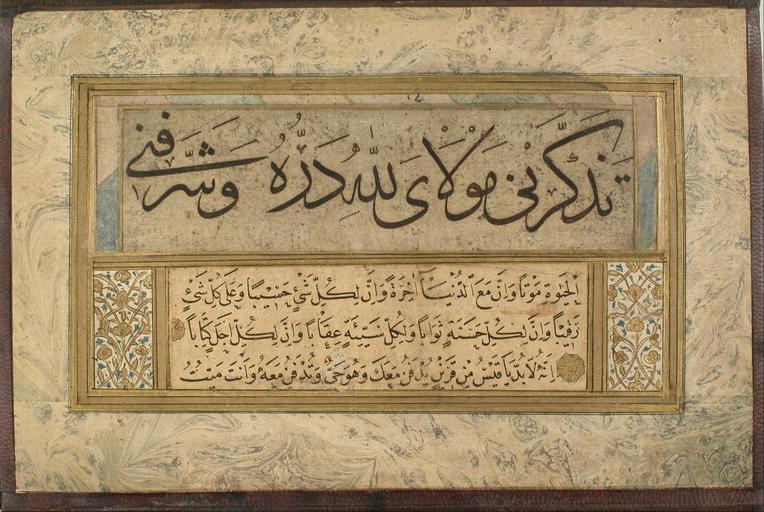 تذكّرني مولاي لله درّه وشرفني
الحيوة موتاً وانّ مع الدّنيا آخرةً وانّ لكلّ شئٍ حسيباً وعلى كلّ شئٍ
رقيباً وانّ لكلّ حسنةٍ ثواباً ولكلّ سيّئةٍ عقاباً وانّ لكلّ اجلٍ كتاباً
انّه لا بدّ يا قيس من قرينٍ يدفن معك وهو حيّ وتدفن معه وانت ميّت